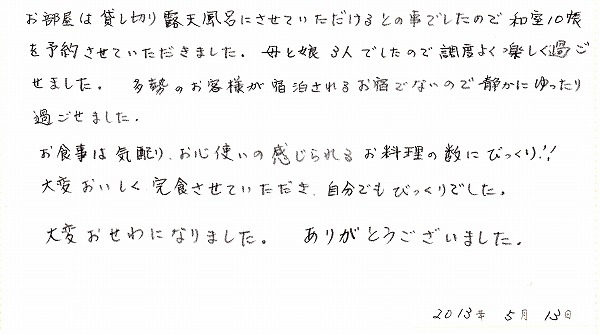 お部屋は貸し切り露天風呂にさせていただけるとの事でしたので和室10帳
を予約させていただきました。母と娘3人でしたので調度よく楽しく過ご
せました。多勢のお客様が宿泊されるお宿でないので静かにゆったり
過ごせました。
お食事は気配り、お心使いの感じられるお料理の数にびっくり!!
大変おいしく完食させていただき、自分でもびっくりでした。
大変おせわになりました。ありがとうございました。
2013年5月13日